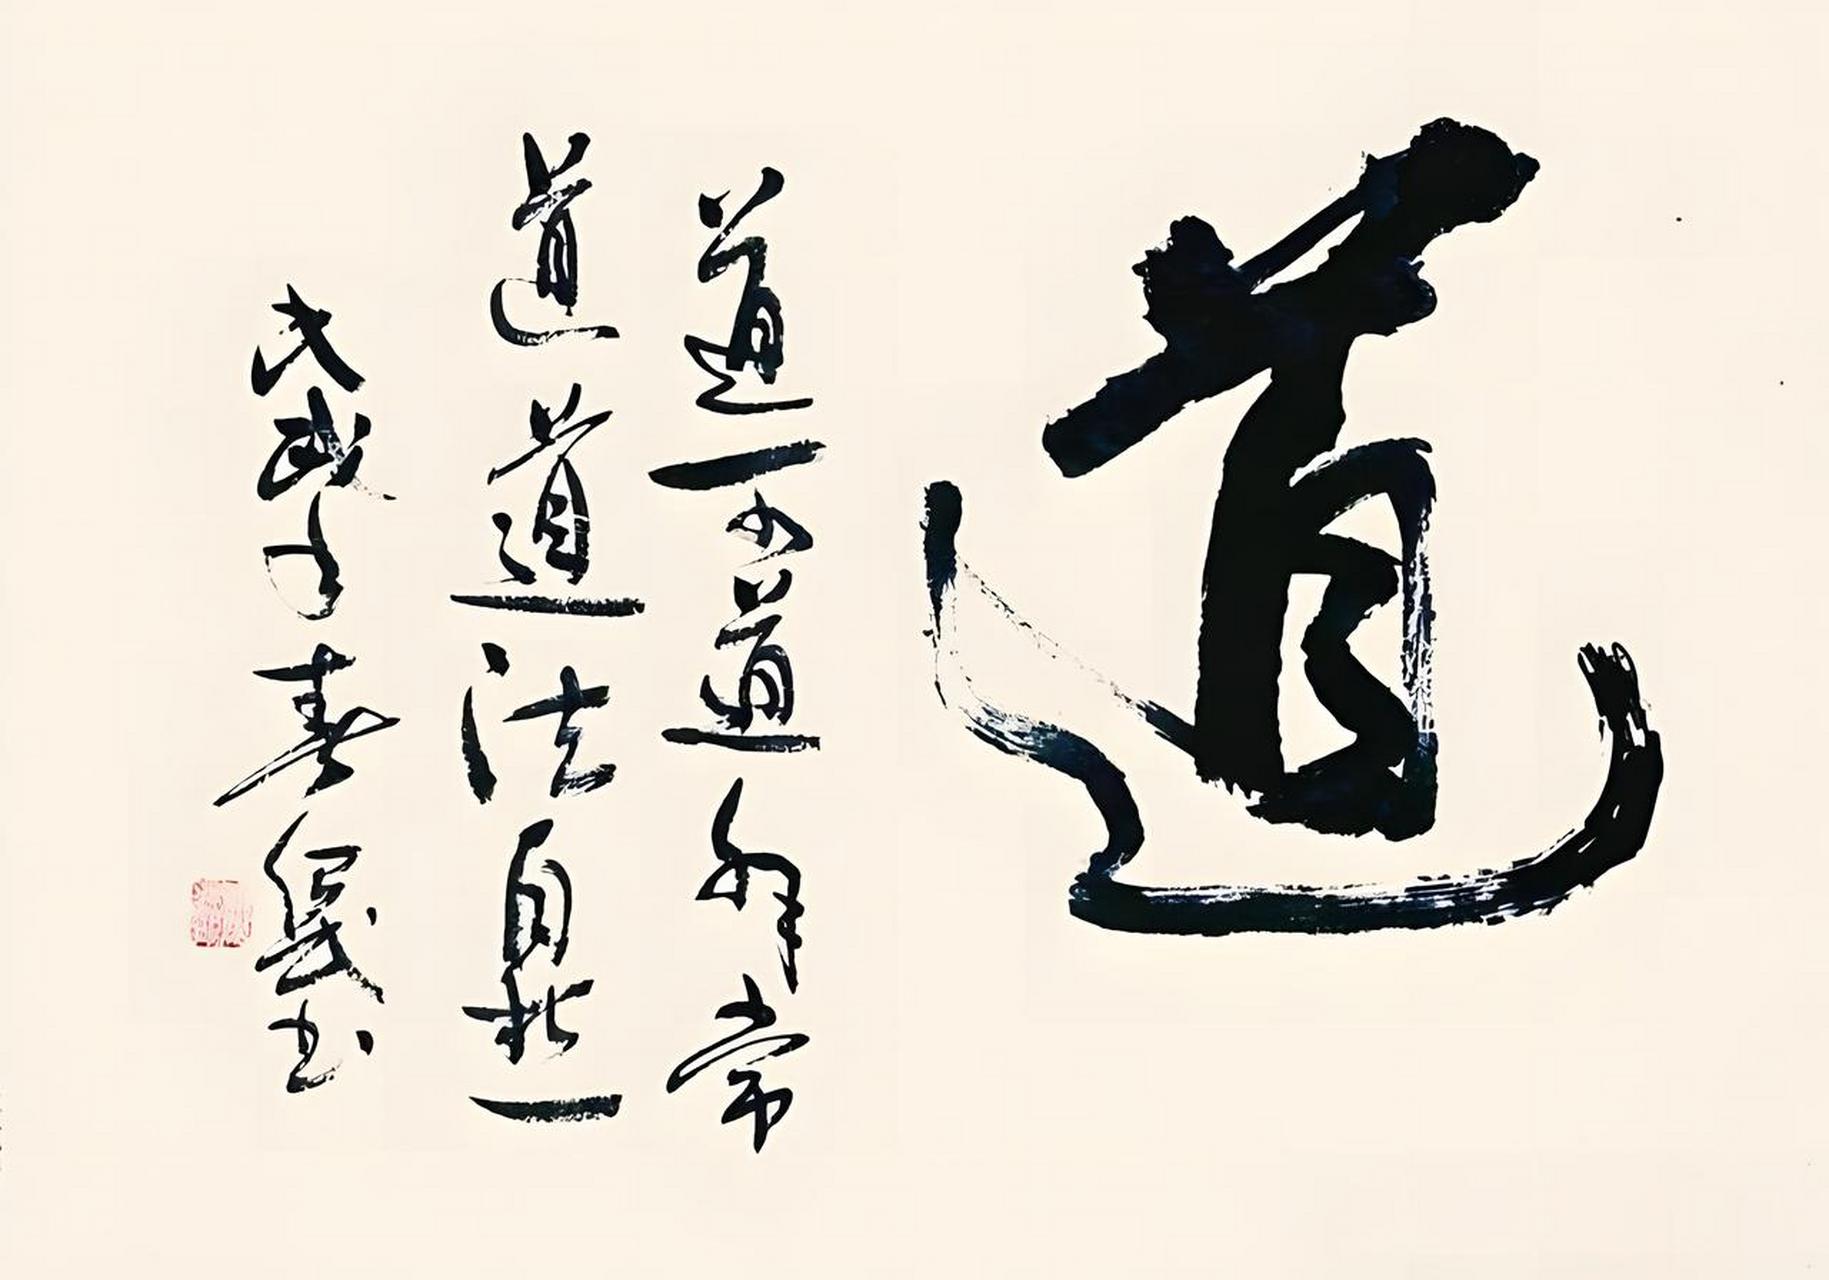 道
道可道非常
道道法自然
戊戌年春 书